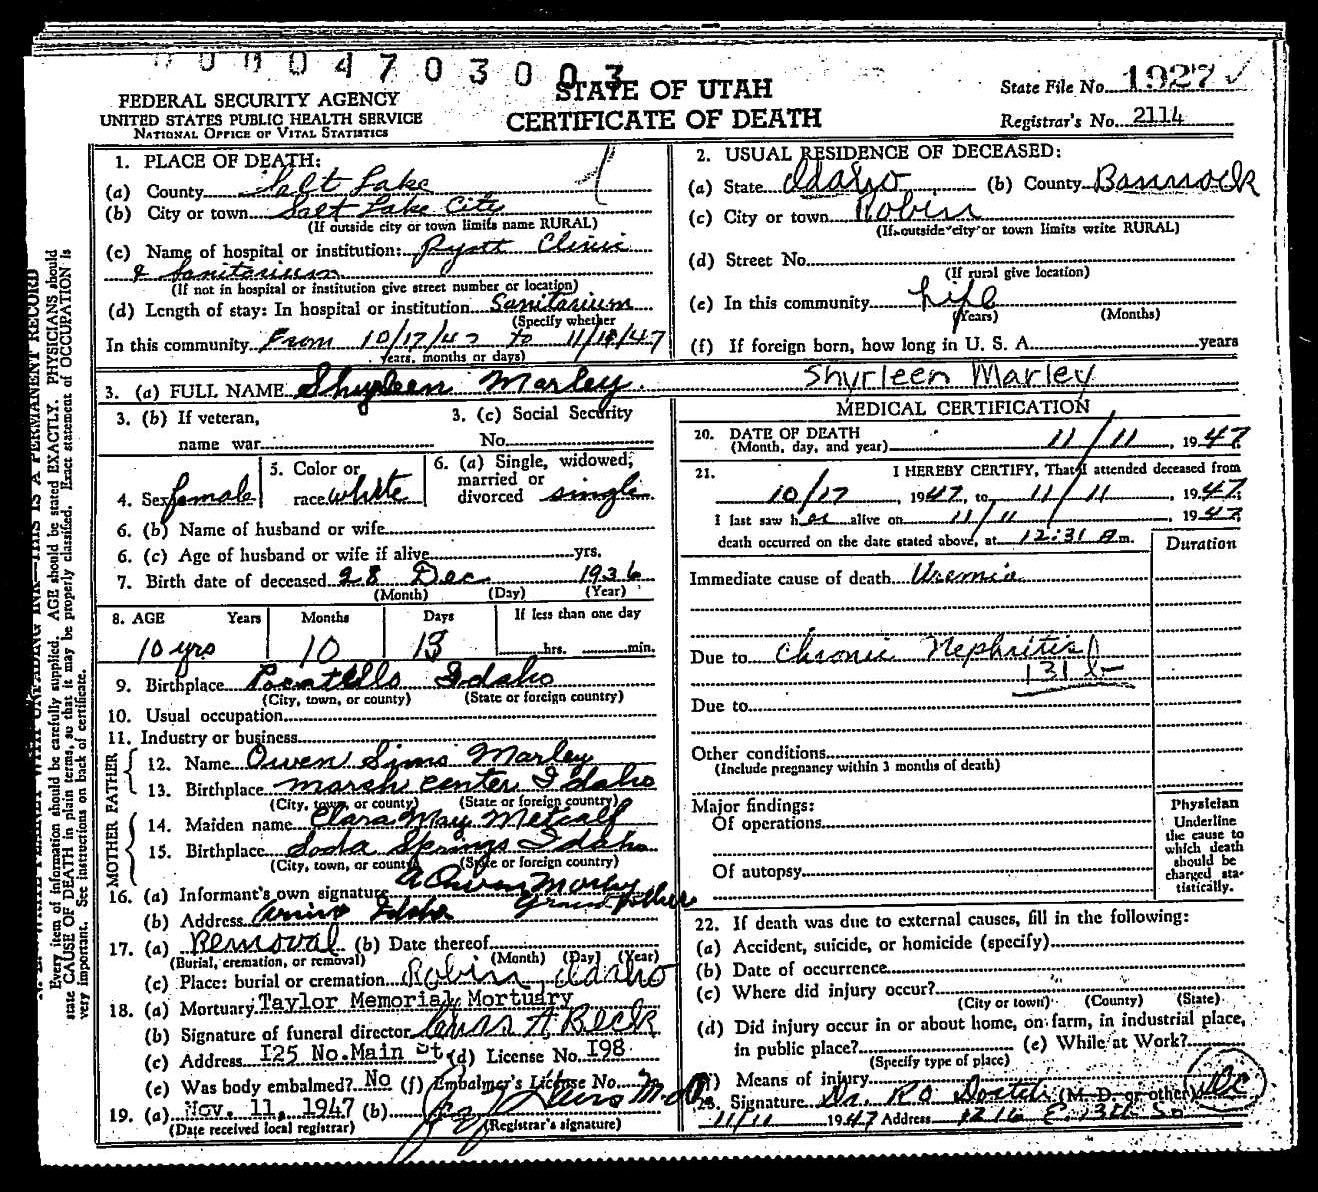 0 0 0 0 4 7 0 3 0 0 3
STATE OF UTAH
CERTIFICATE OF DEATH
FEDERAL SECURITY AGENCY
UNITED STATES PUBLIC HEALTH SERVICE
NATIONAL OFFICE OF VITAL STATISTICS
State File No. 1927 ✓
Registrar's No. 2114
1. PLACE OF DEATH:
(a) County Salt Lake
(b) City or town Salt Lake City
(If outside city or town limits name RURAL)
(c) Name of hospital or institution: Pyott Clinic
& Sanitarium
(If not in hospital or institution give street number or location)
(d) Length of stay: In hospital or institution Sanitarium
(Specify whether
In this community From 10/17/47 to 11/11/47
years, months or days)
2. USUAL RESIDENCE OF DECEASED:
(a) State Idaho (b) County Bannock
(c) City or town Robin
(If outside city or town limits write RURAL)
(d) Street No.
(If rural give location)
(e) In this community life
(Years) (Months)
(f) If foreign born, how long in U. S. A. years
3. (a) FULL NAME Shyrleen Marley Shyrleen Marley
3. (b) If veteran, 3. (c) Social Security
name war No.
4. Sex female 5. Color or race white 6. (a) Single, widowed, married or divorced single
6. (b) Name of husband or wife
6. (c) Age of husband or wife if alive yrs.
7. Birth date of deceased 28 Dec 1936
(Month) (Day) (Year)
8. AGE Years Months Days If less than one day
10 yrs 10 13 hrs. min.
9. Birthplace Pocatello Idaho
(City, town, or county) (State or foreign country)
10. Usual occupation
11. Industry or business
FATHER
12. Name Owen Sims Marley
13. Birthplace Marsh Center Idaho
(City, town, or county) (State or foreign country)
MOTHER
14. Maiden name Clara May Metcalf
15. Birthplace Soda Springs Idaho
(City, town, or county) (State or foreign country)
16. (a) Informant's own signature A Owen Marley
Grand father
(b) Address Arimo Idaho
17. (a) Removal (b) Date thereof
(Burial, cremation, or removal) (Month) (Day) (Year)
(c) Place: burial or cremation Robin, Idaho
18. (a) Mortuary Taylor Memorial Mortuary
(b) Signature of funeral director A Beck
(c) Address I25 No.Main St (d) License No. I98
(e) Was body embalmed? No (f) Embalmer's License No.
19. (a) Nov. 11, 1947 (b)
(Date received local registrar) (Registrar's signature)
MEDICAL CERTIFICATION
20. DATE OF DEATH
(Month, day, and year) 11/11, 1947
21. I HEREBY CERTIFY, That I attended deceased from
10/17, 1947, to 11/11, 1947
I last saw her alive on 11/11, 1947
death occurred on the date stated above, at 12:31 A m.
Duration
Immediate cause of death Uremia
Due to Chronic Nephritis
131
Due to
Other conditions
(Include pregnancy within 3 months of death)
Major findings:
Of operations
Of autopsy
Physician
Underline
the cause to
which death
should be
charged sta-
tistically.
22. If death was due to external causes, fill in the following:
(a) Accident, suicide, or homicide (specify)
(b) Date of occurrence
(c) Where did injury occur?
(City or town) (County) (State)
(d) Did injury occur in or about home, on farm, in industrial place,
in public place? (e) While at Work?
(Specify type of place)
(f) Means of injury
23. Signature Dr. R O (M. D. or other) DC
11/11 1947 Address 1216 E. 13th So
Every item of information should be carefully supplied. AGE should be stated EXACTLY. PHYSICIANS should
state CAUSE OF DEATH in plain terms, so that it may be properly classified. Exact statement of OCCUPATION is
very important. See instructions on back of certificate.